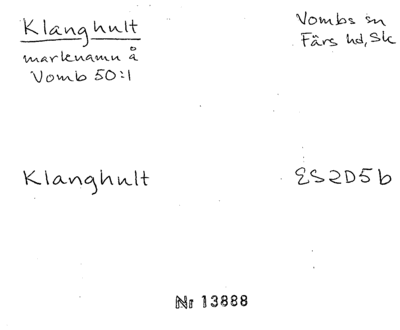 Klanghult
marknamn å
Vomb 50:1
Vombs sn
Färs hd, Sk
Klanghult
ES2D5b
Nr 13888